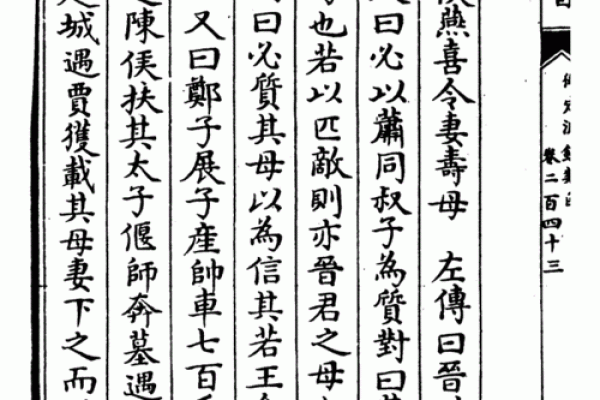 卷二百四十三
燕喜令妻壽母 左傳曰晉
曰必以蕭同叔子為質對曰
也若以匹敵則亦晉君之母
曰必質其母以為信其若王
又曰鄭子展子產帥車七百
陳侯扶其太子偃師奔墓遇
城遇賈獲載其母妻下之而